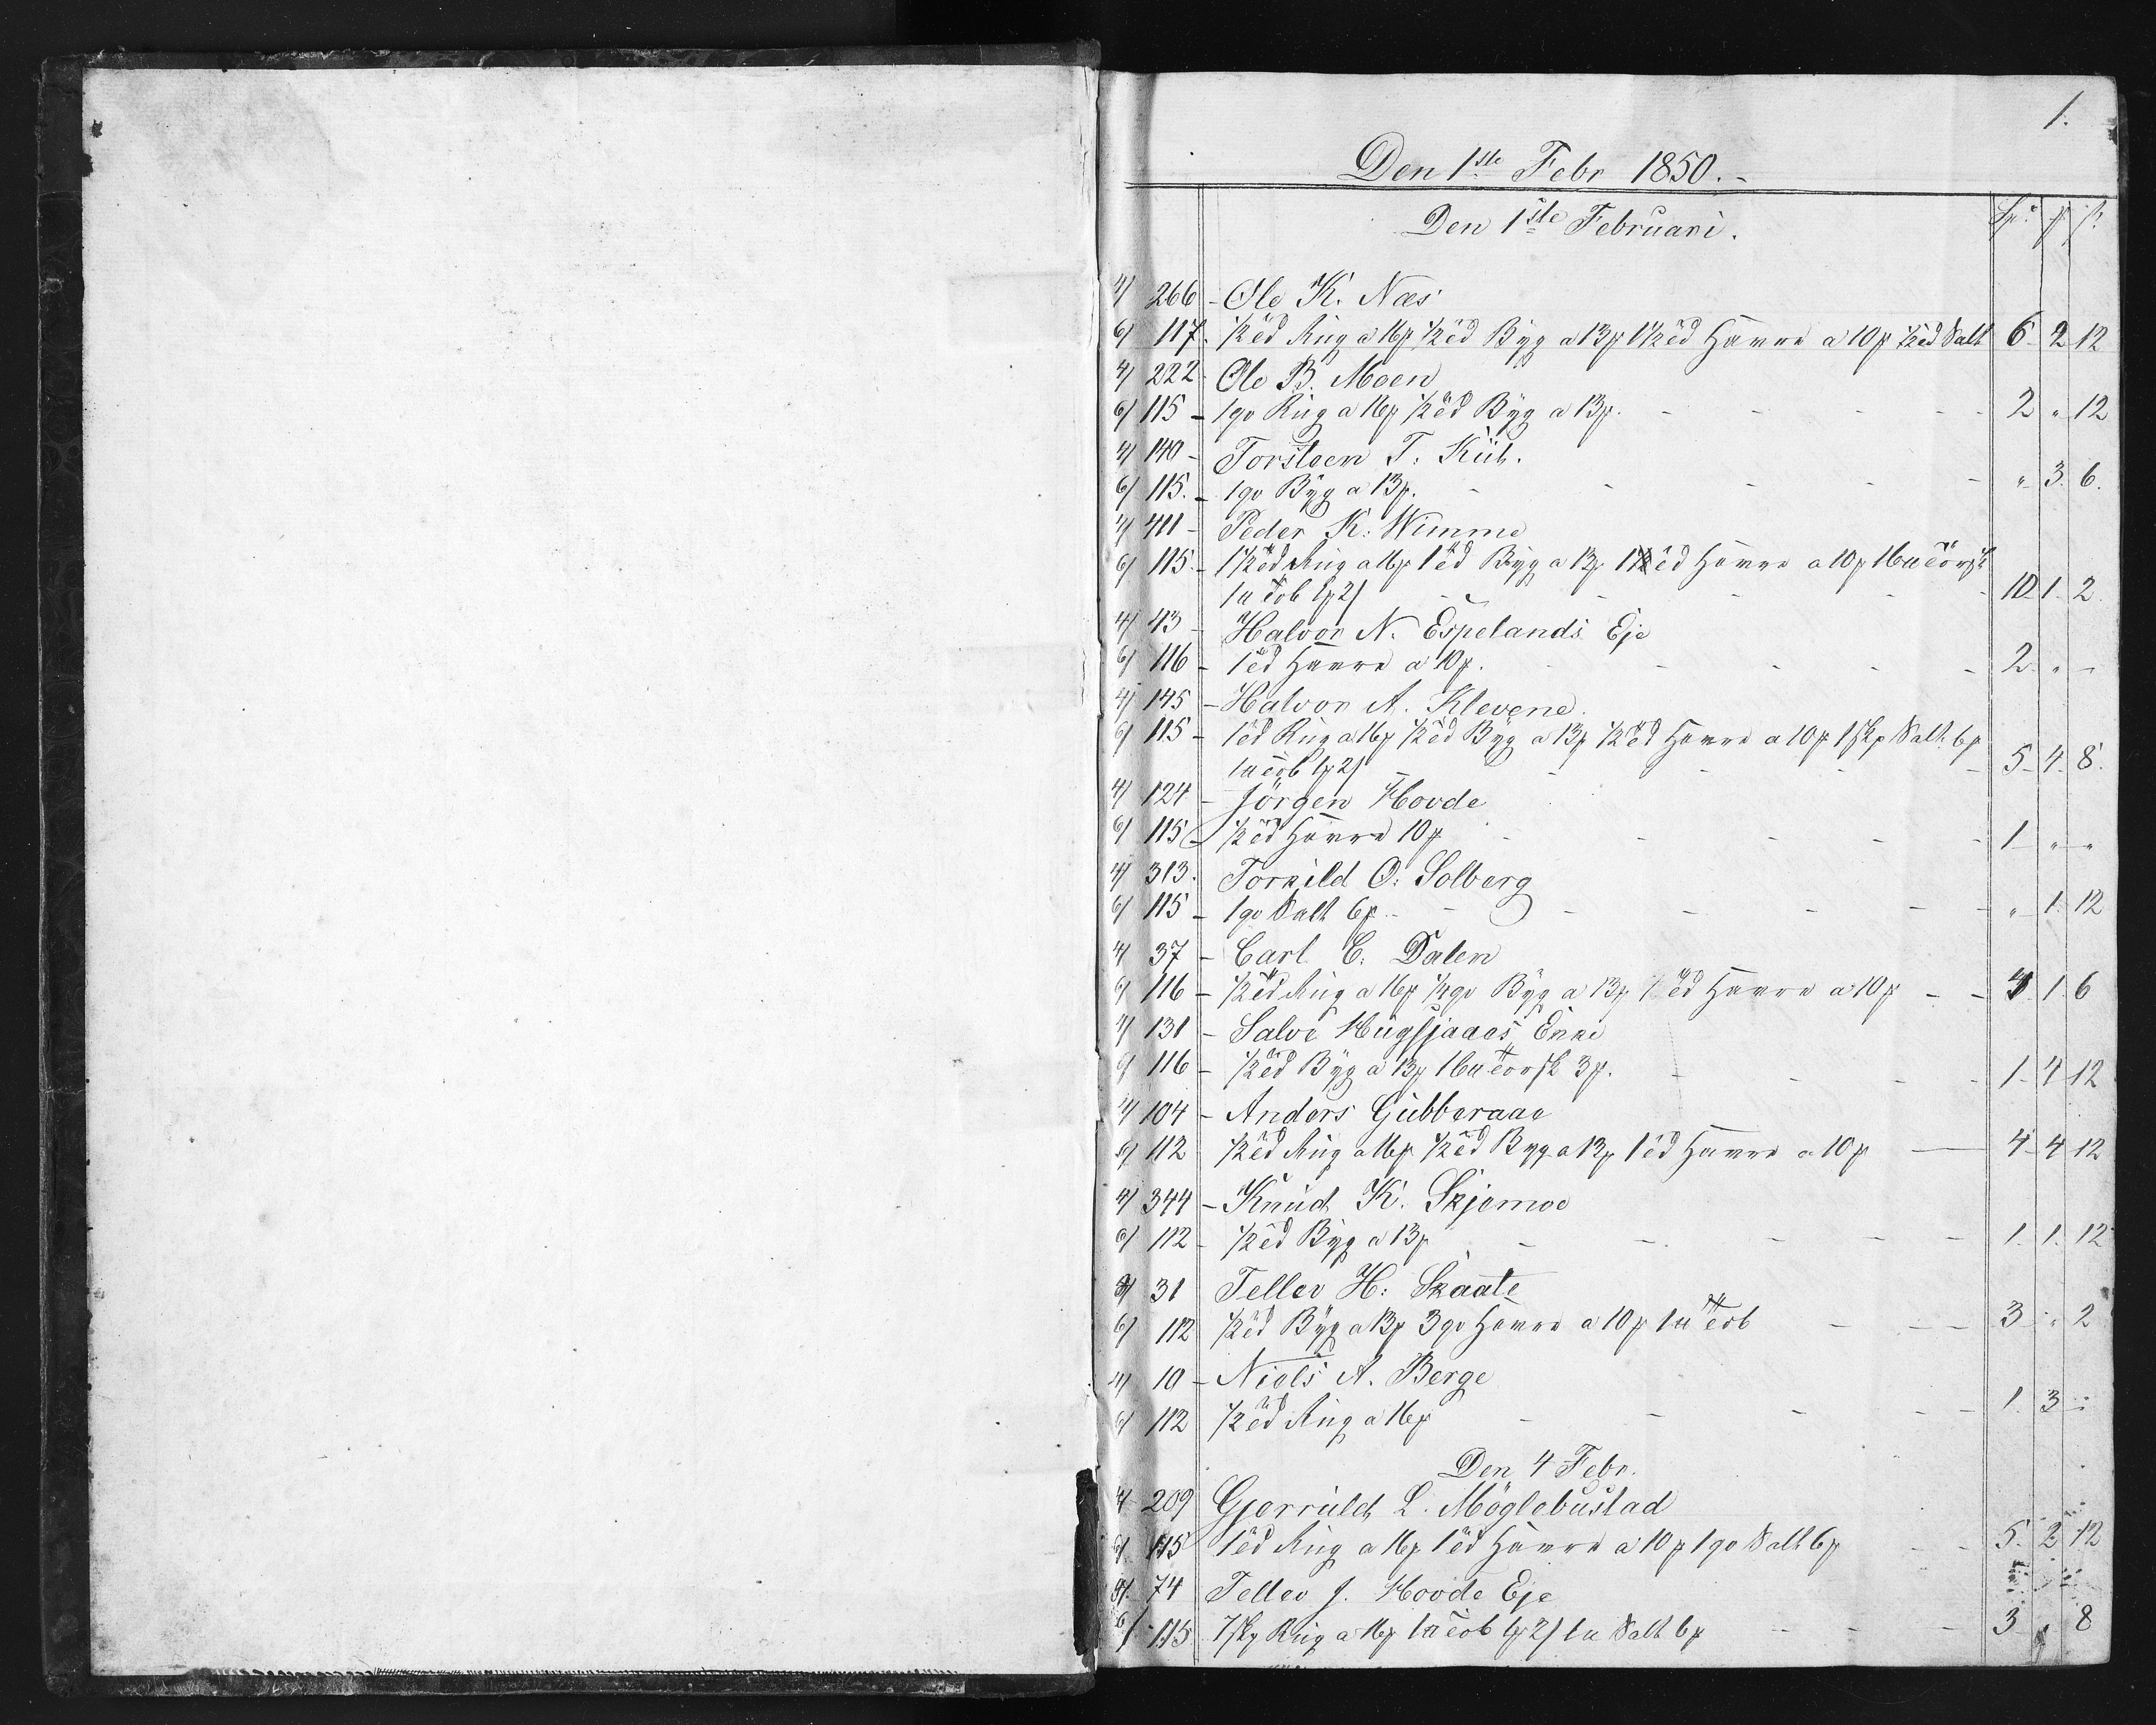 1.
Den 1ste Febr 1850.
Den 1ste Februari.
4) 266 - Ole K. Næs
6) 117. 1/2 Td Rug a 16 1/2 Td Byg a 13 1 1/2 Td Havre a 10 1/2 Td Salt 6 2 12
4) 222 Ole B. Moen
6) 115 - 1 qr Rug a 16 1/2 Td Byg a 13 - - - - 2 " 12
4) 140 - Torsteen T.
6) 115. - 1 qr Byg a 13 - - - - " 3 6.
4) 411 - Peder K. Wimme
6) 115. - 1 1/2 Td Rug a 16 1 Td Byg a 13 1 Td Havre a 10 16 Torsk
1 Tob 2 - - - - 10 1 2
4) 43 - Halvor N. Espelands Eje
6) 116 - 1 Td Havre a 10 - - - - 2 " -
4) 145 - Halvor A. Klevene.
6) 115 - 1 Td Rug a 16 1/2 Td Byg a 13 1/2 Td Havre a 10 1 Skp Salt 6
1 Tob 2 - - - - 5 4 8.
4) 124 - Jörgen Hovde
6) 115 1/2 Td Havre 10 - - - - 1 " "
4) 313. Torkild O. Solberg
6) 115 - 1 qr Salt 6 - - - - " 1 12
4) 37 - Carl C. Dalen
6) 116 - 1/2 Td Rug a 16 1/4 qr Byg a 13 Td Havre a 10 - - 1 6
4) 131 - Salve Enke
6) 116 - 1/2 Td Byg a 13 16 Torsk 3 - - - 1 4 12
4) 104 - Anders Gubberaae
6) 112 1/2 Td Rug a 16 1/2 Td Byg a 13 1 Td Havre a 10 - 4 4 12
4) 344 - Knud K. Skjemoe
6) 112 - 1/2 Td Byg a 13 - - - - 1. 1. 12
4) 31 Tellev H. Skaate
6) 112 1/2 Td Byg a 13 3 qr Havre a 10 1 Tob - - 3 " 2
4) 10 - Niels A. Berge
6) 112 1/2 Td Rug a 16 - - - - 1. 3 "
Den 4 Febr.
4) 209 Gjeruld L. Möglebustad
6) 115 1 Td Rug a 16 1 Td Havre a 10 1 qr Salt 6 - - 5. 2 12
4) 74 Tellev J. Hovde Eje
6) 115 7 Skp Rug a 16 1 Tob 2 1 Salt 6 - - 3 " 8